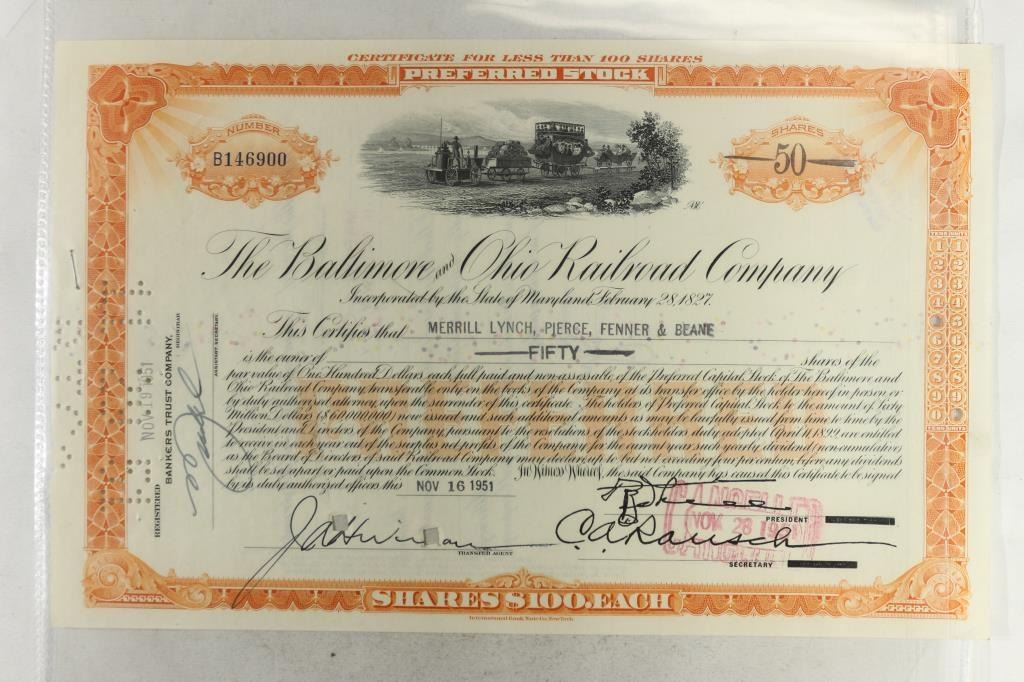 CERTIFICATE FOR LESS THAN 100 SHARES
PREFERRED STOCK
NUMBER
B146900
SHARES
50
The Baltimore and Ohio Railroad Company
Incorporated by the State of Maryland, February 28, 1827.
This Certifies that MERRILL LYNCH, PIERCE, FENNER & BEANE
FIFTY
is the owner of shares of the
par value of One Hundred Dollars each full paid and non-assessable of the Preferred Capital Stock of The Baltimore and
Ohio Railroad Company, transferable only on the books of the Company at its transfer office by the holder hereof in person or
by duly authorized attorney, upon the surrender of this certificate. The holders of Preferred Capital Stock to the amount of Sixty
Million Dollars ($60,000,000) now issued and such additional amounts as may be lawfully issued from time to time by the
President and Directors of the Company, pursuant to the resolutions of the stockholders duly adopted April 11, 1899, are entitled
to receive in each year out of the surplus net profits of the Company for the current year, such yearly dividend (non cumulative)
as the Board of Directors of said Railroad Company may declare, up to but not exceeding four per centum, before any dividends
shall be set apart or paid upon the Common Stock. In Witness Whereof, the said Company has caused this certificate to be signed
by its duly authorized officers this NOV 16 1951
PRESIDENT
TRANSFER AGENT
C.A. Rausch
SECRETARY
CANCELLED
NOV 28 19
CANCELLED
REGISTERED
NOV 19 1951
BANKERS TRUST COMPANY,
REGISTRAR
ASSISTANT SECRETARY
TENS UNITS
1 1
2 2
3 3
4 4
5 5
6 6
7 7
8 8
9 9
0 0
TENS UNITS
SHARES $100. EACH
International Bank Note Co. New York